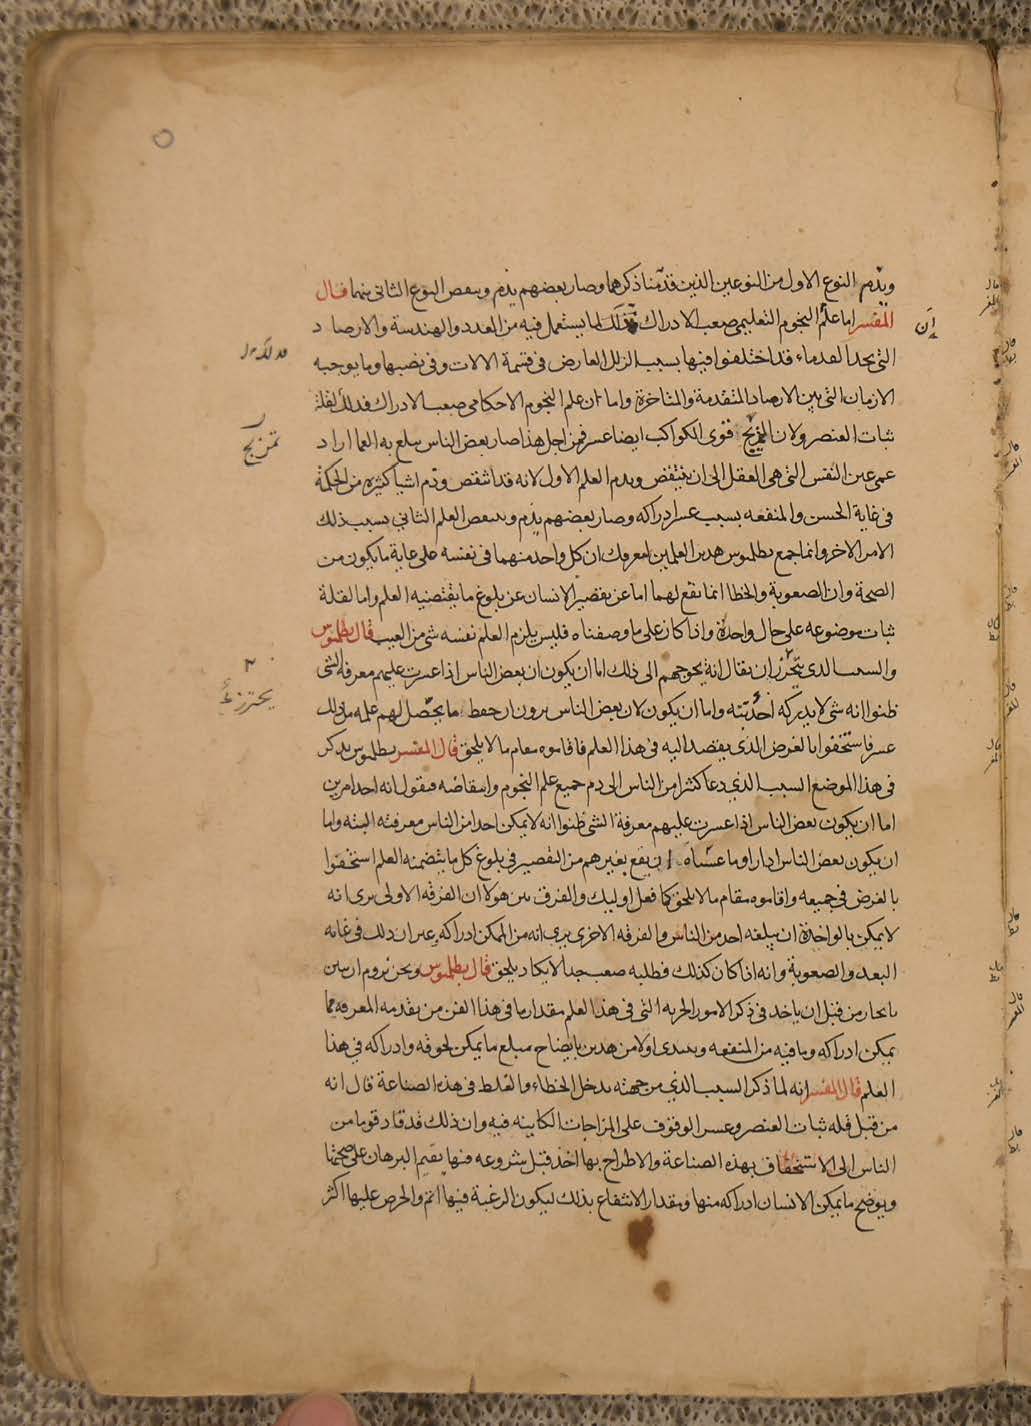 ويذم النوع الاول من النوعين الذين قدمنا ذكرهما وصار بعضهم يذم وينقص النوع الثاني منهما قال
المفسر اما علم النجوم التعليمي صعب الادراك فذلك لما يستعمل فيه من العدد والهندسة والارصاد
التي نجد القدماء قد اختلفوا فيها بسبب الزلل العارض في قسمة الالات وفي نصبها وما يوجبه
الازمان التي بين الارصاد المتقدمة والمتاخرة واما ان علم النجوم الاحكامي صعب الادراك فذلك لقلة
ثبات العنصر ولان قوى الكواكب ايضا عسر فمن اجل هذا صار بعض الناس يبلغ به العما ارا د
عمى عين النفس التي هي العقل الى ان ينتقص ويذم العلم الاول لانه قد انتقص وذم اشيا كثيره من الحكمة
في غاية الحسن والمنفعه بسبب عسر ادراكه وصار بعضهم يذم وينقص العلم الثاني بسبب ذلك
الامر الاخر وانما جمع بطلميوس هدين العلمين ليعرفك ان كل واحد منهما في نفسه على غاية ما يكون من
الصحة وان الصعوبة والخطا انما يقع لهما اما عن تقصير الانسان عن بلوغ ما يقتضيه العلم واما لقلة
ثبات موضوعه على حال واحدة واذا كان على ما وصفناه فليس يلزم العلم نفسه شي من العيب قال بطلميوس
والسبب الذي ان يقال انه يحوجهم الى ذلك اما ان يكون ان بعض الناس اذا عسرت عليهم معرفه الشي
ظنوا انه شي لا يدركه احد بتة واما ان يكون لان بعض الناس يرون ان حفظ ما يحصل لهم علمه من ذلك
عسر فاستخفوا بالغرض الذي يقصد اليه في هذا العلم فاقاموه مقام ما لا يلحق قال المفسر بطلميوس يذكر
في هذا الموضع السبب الذي دعا كثيرا من الناس الى ذم جميع علم النجوم وانتقاصه فيقول انه احد امرين
اما ان يكون بعض الناس اذا عسرت عليهم معرفة الشي ظنوا انه لا يمكن احدا من الناس معرفته البتة واما
ان يكون بعض الناس اذا راوا ما عساه ان يقع بغيرهم من التقصير في بلوغ كل ما يتضمنه العلم استخفوا
بالغرض في جميعه واقاموه مقام ما لا يلحق كما فعل اوليك والفرق بين هولا ان الفرقه الاولى يرى انه
لا يمكن بالواحدة ان يبلغه احد من الناس والفرقه الاخرى يرى انه من الممكن ادراكه غير ان ذلك في غاية
البعد والصعوبة وانه اذا كان كذلك فطلبه صعب جدا لا يكاد يلحق قال بطلميوس ونحن نروم ان نبين
بايجاز من قبل ان ياخد في ذكر الامور الجزيه التي في هذا العلم مقدار ما في هذا الفن من تقدمه المعرفه مما
يمكن ادراكه وما فيه من المنفعه ونبتدي اولا من هدين بايضاح مبلغ ما يمكن لحوقه وادراكه في هذا
العلم قال المفسر انه لما ذكر السبب الذي من جهته يدخل الخطاء والغلط في هذه الصناعة قال انه
من قبل قله ثبات العنصر وعسر الوقوف على المزاجات الكاينه فيه وان ذلك قد قاد قوما من
الناس الى الاستخفاف بهذه الصناعة والاطراح بها اخذ قبل شروعه فيها يقيم البرهان على صحتها
ويوضح ما يمكن الانسان ادراكه منها ومقدار الانتفاع بذلك ليكون الرغبة فيها اتم والحرص عليها اكثر
إن
تمزيج